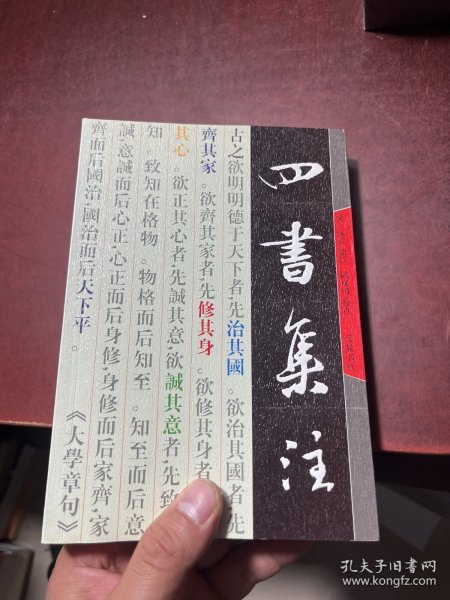 四書集注
古之欲明明德于天下者,先治其國。欲治其國者,先
齊其家。欲齊其家者,先修其身。欲修其身者
其心。欲正其心者先誠其意,欲誠其意者,先致
知。致知在格物。物格而后知至。知至而后意
誠,意誠而后心正,心正而后身修,身修而后家齊,家
齊而后國治,國治而后天下平。
《大學章句》
孔夫子旧书网
www.kongfz.com